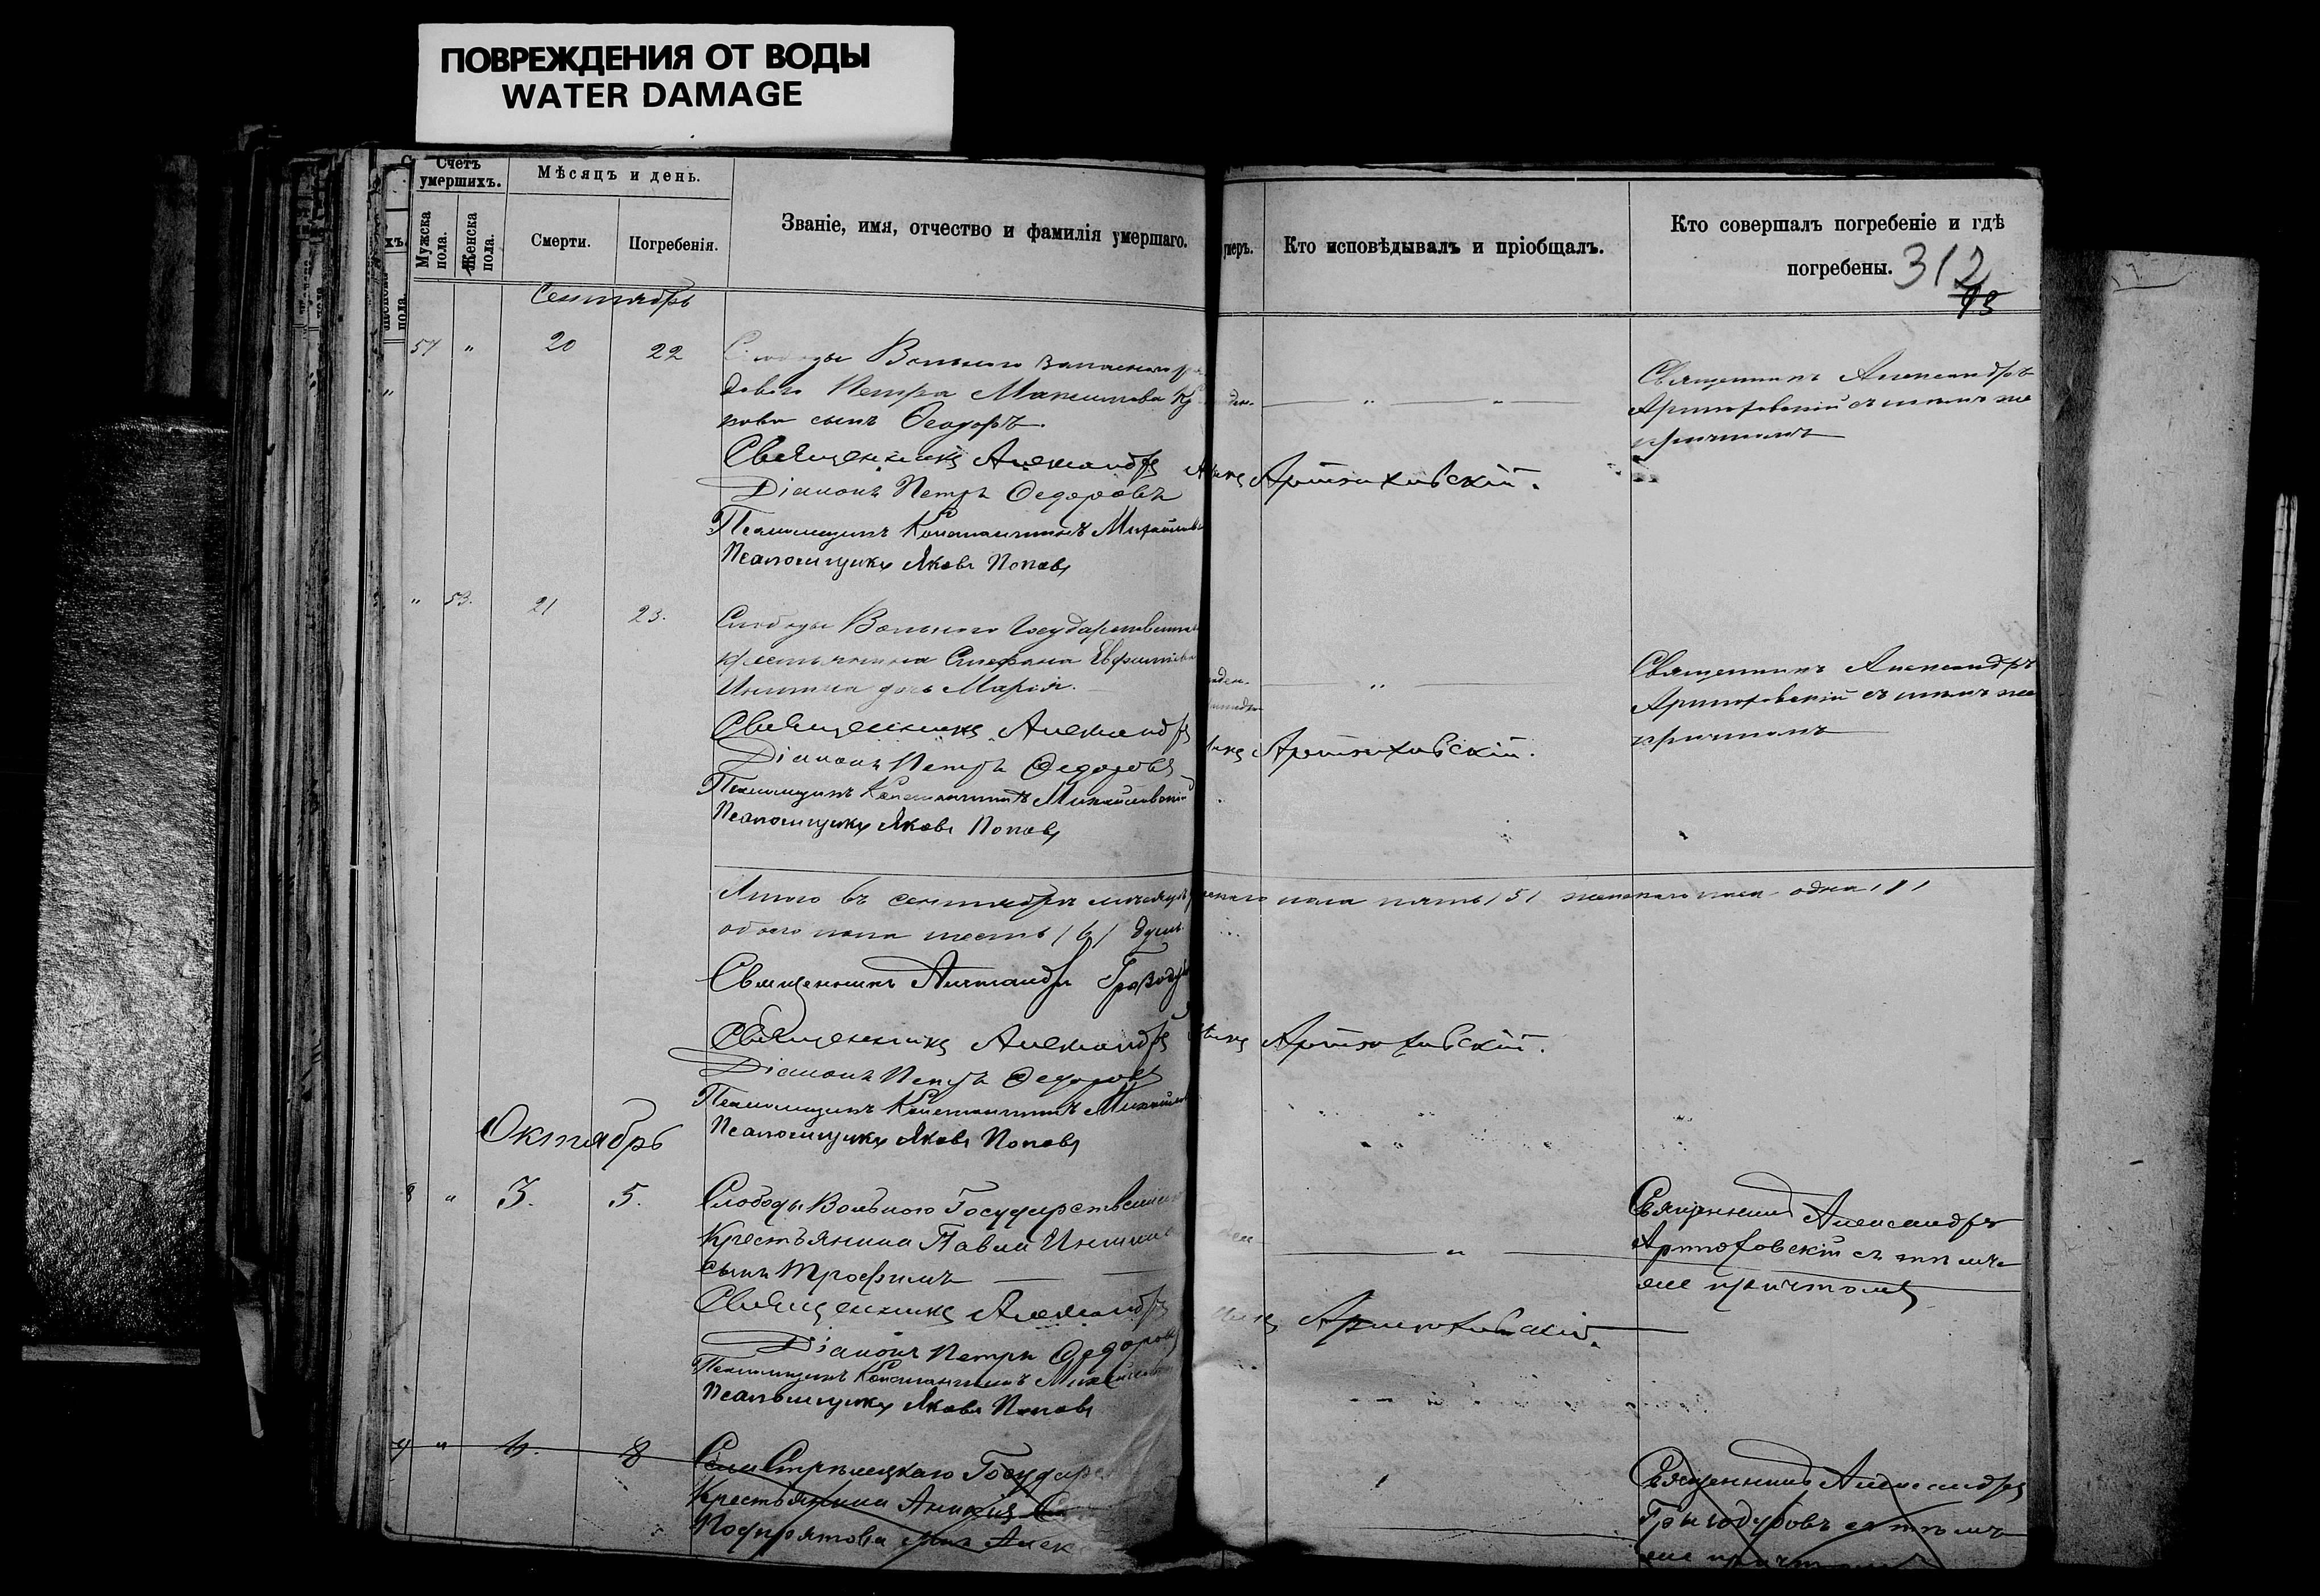 ПОВРЕЖДЕНИЯ ОТ ВОДЫ
WATER DAMAGE
Счетъ умершихъ.
Мужска пола.
Женска пола.
Мѣсяцъ и день.
Смерти.
Погребенія.
Званіе, имя, отчество и фамилія умершаго.
Кто исповѣдывалъ и пріобщалъ.
Кто совершалъ погребеніе и гдѣ
погребены.
312
Сентябрь
57 " 20 22
Слободы Вольного запасного
дового Петра Максимова
сынъ Ѳеодоръ
Священникъ Александръ
Артюховскій съ тѣмъ же
причтомъ
Священникъ Александръ Артюховскій.
Діаконъ Петръ Ѳедоровъ
Псаломщикъ Константинъ
Псаломщикъ Яковъ Поповъ
" 53. 21 23.
Слободы Вольного Государственнаго
крестьянина Стефана
дочь Марія.
Священникъ Александръ
Артюховскій съ тѣмъ же
причтомъ
Священникъ Александръ Артюховскій.
Діаконъ Петръ Ѳедоровъ
Псаломщикъ Константинъ Михайловскій
Псаломщикъ Яковъ Поповъ
Итого въ сентябрѣ мѣсяцѣ пола пять /5/ женскаго пола одна /1/
обоего пола шесть /6/ душъ.
Священникъ Александръ
Священникъ Александръ Артюховскій.
Діаконъ Петръ Ѳедоровъ
Псаломщикъ Константинъ
Псаломщикъ Яковъ Поповъ
Октябрь
8 " 3. 5.
Слободы Вольного Государственнаго
Крестьянина Павла
сынъ Трофимъ
Священникъ Александръ
Артюховскій съ тѣмъ
же причтомъ
Священникъ Александръ Артюховскій.
Діаконъ Петръ Ѳедоровъ
Псаломщикъ Константинъ
Псаломщикъ Яковъ Поповъ
" 8
Села Стрѣлецкаго
Крестьянина
Священникъ Александръ
съ тѣмъ
же